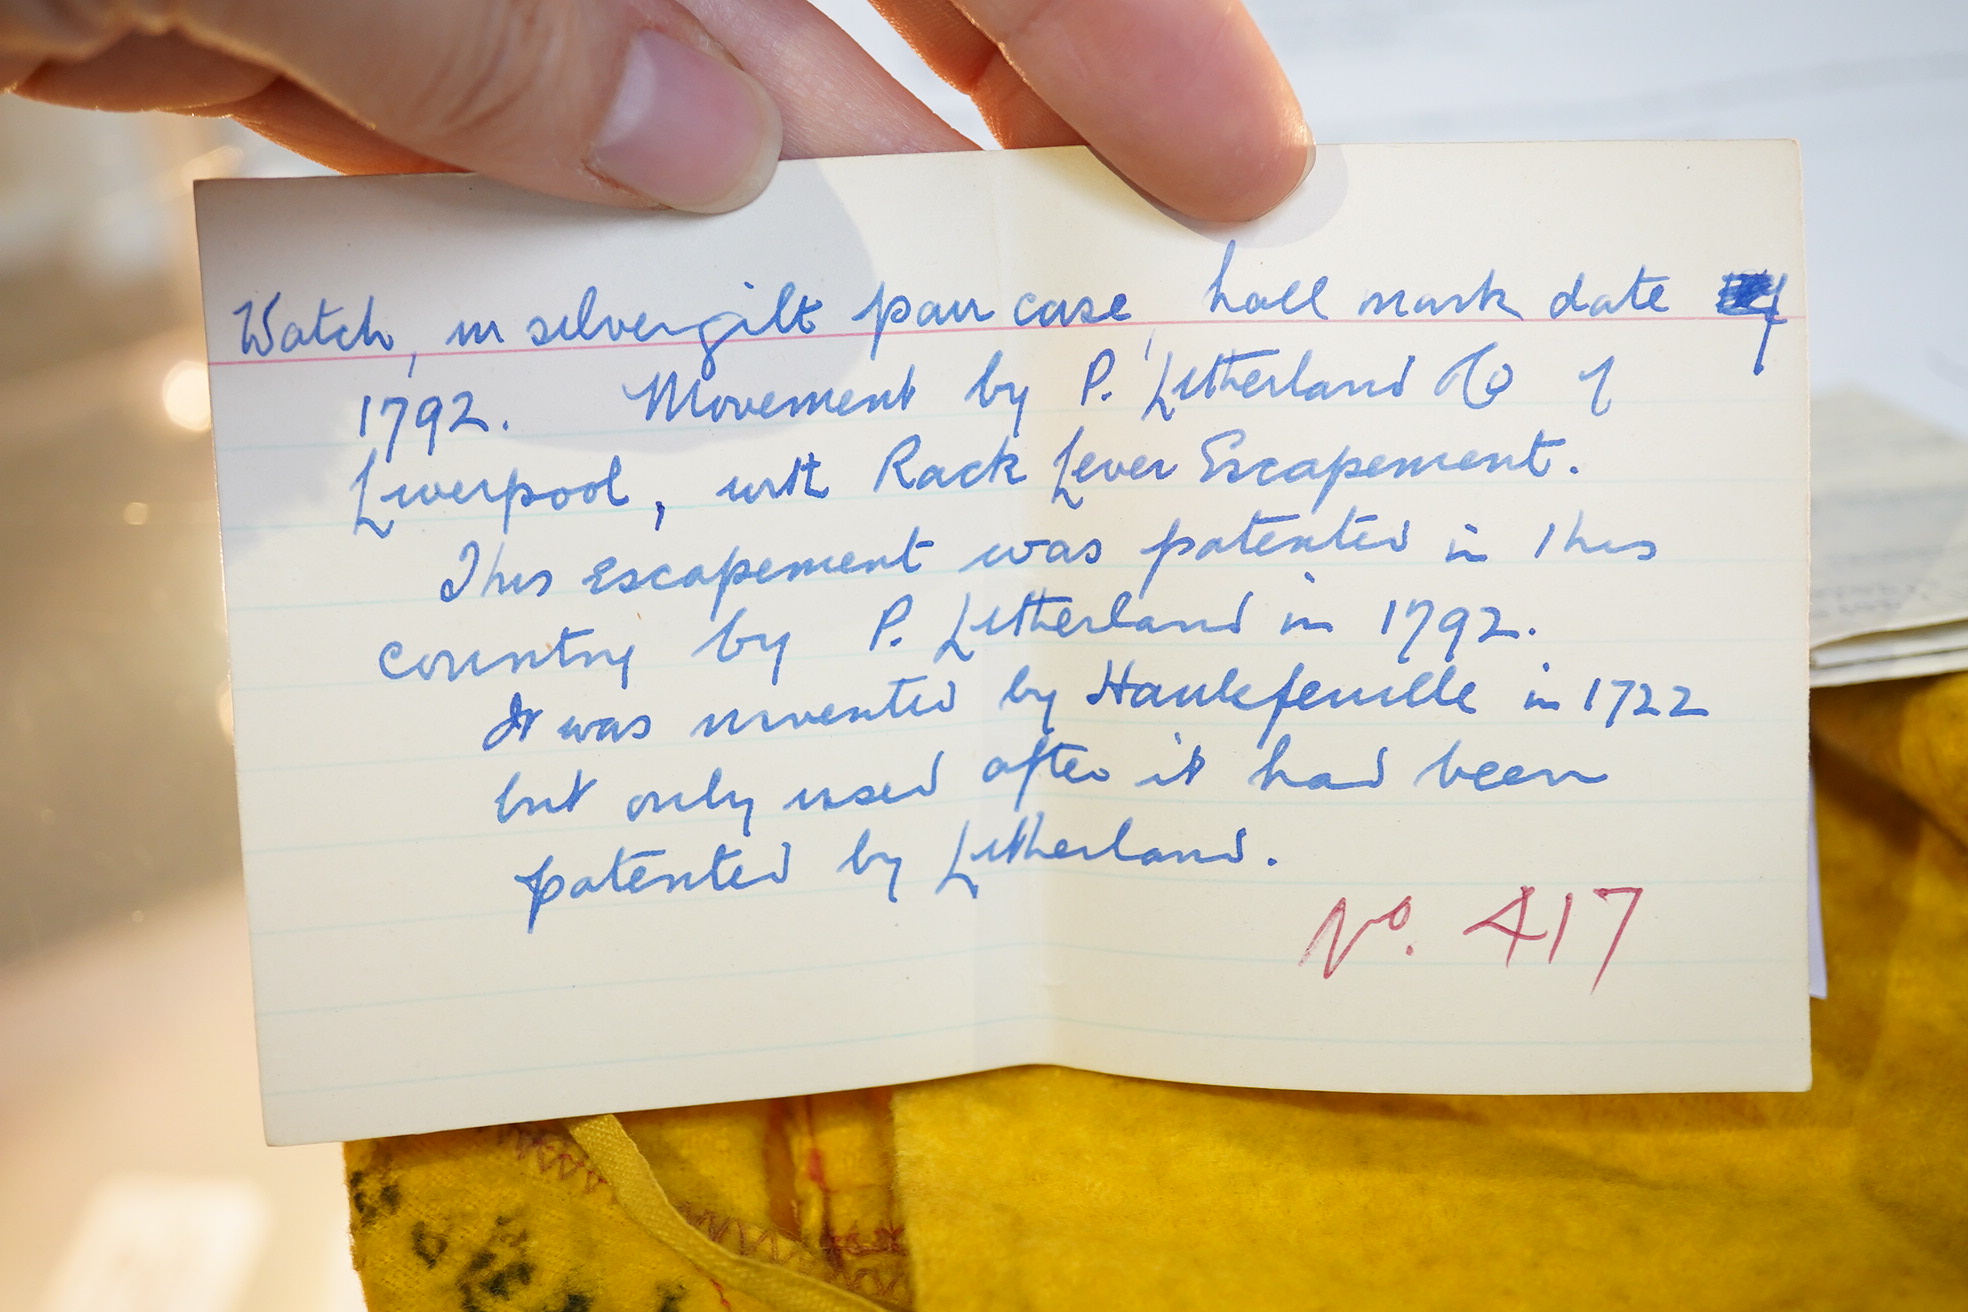 Watch, in silvergilt pair case, hall mark date of
1792. Movement by P. Litherland & Co of
Liverpool, with Rack Lever Escapement.
This escapement was patented in this
country by P. Litherland in 1792.
It was invented by Hautefeuille in 1722
but only used after it had been
patented by Litherland.
No. 417